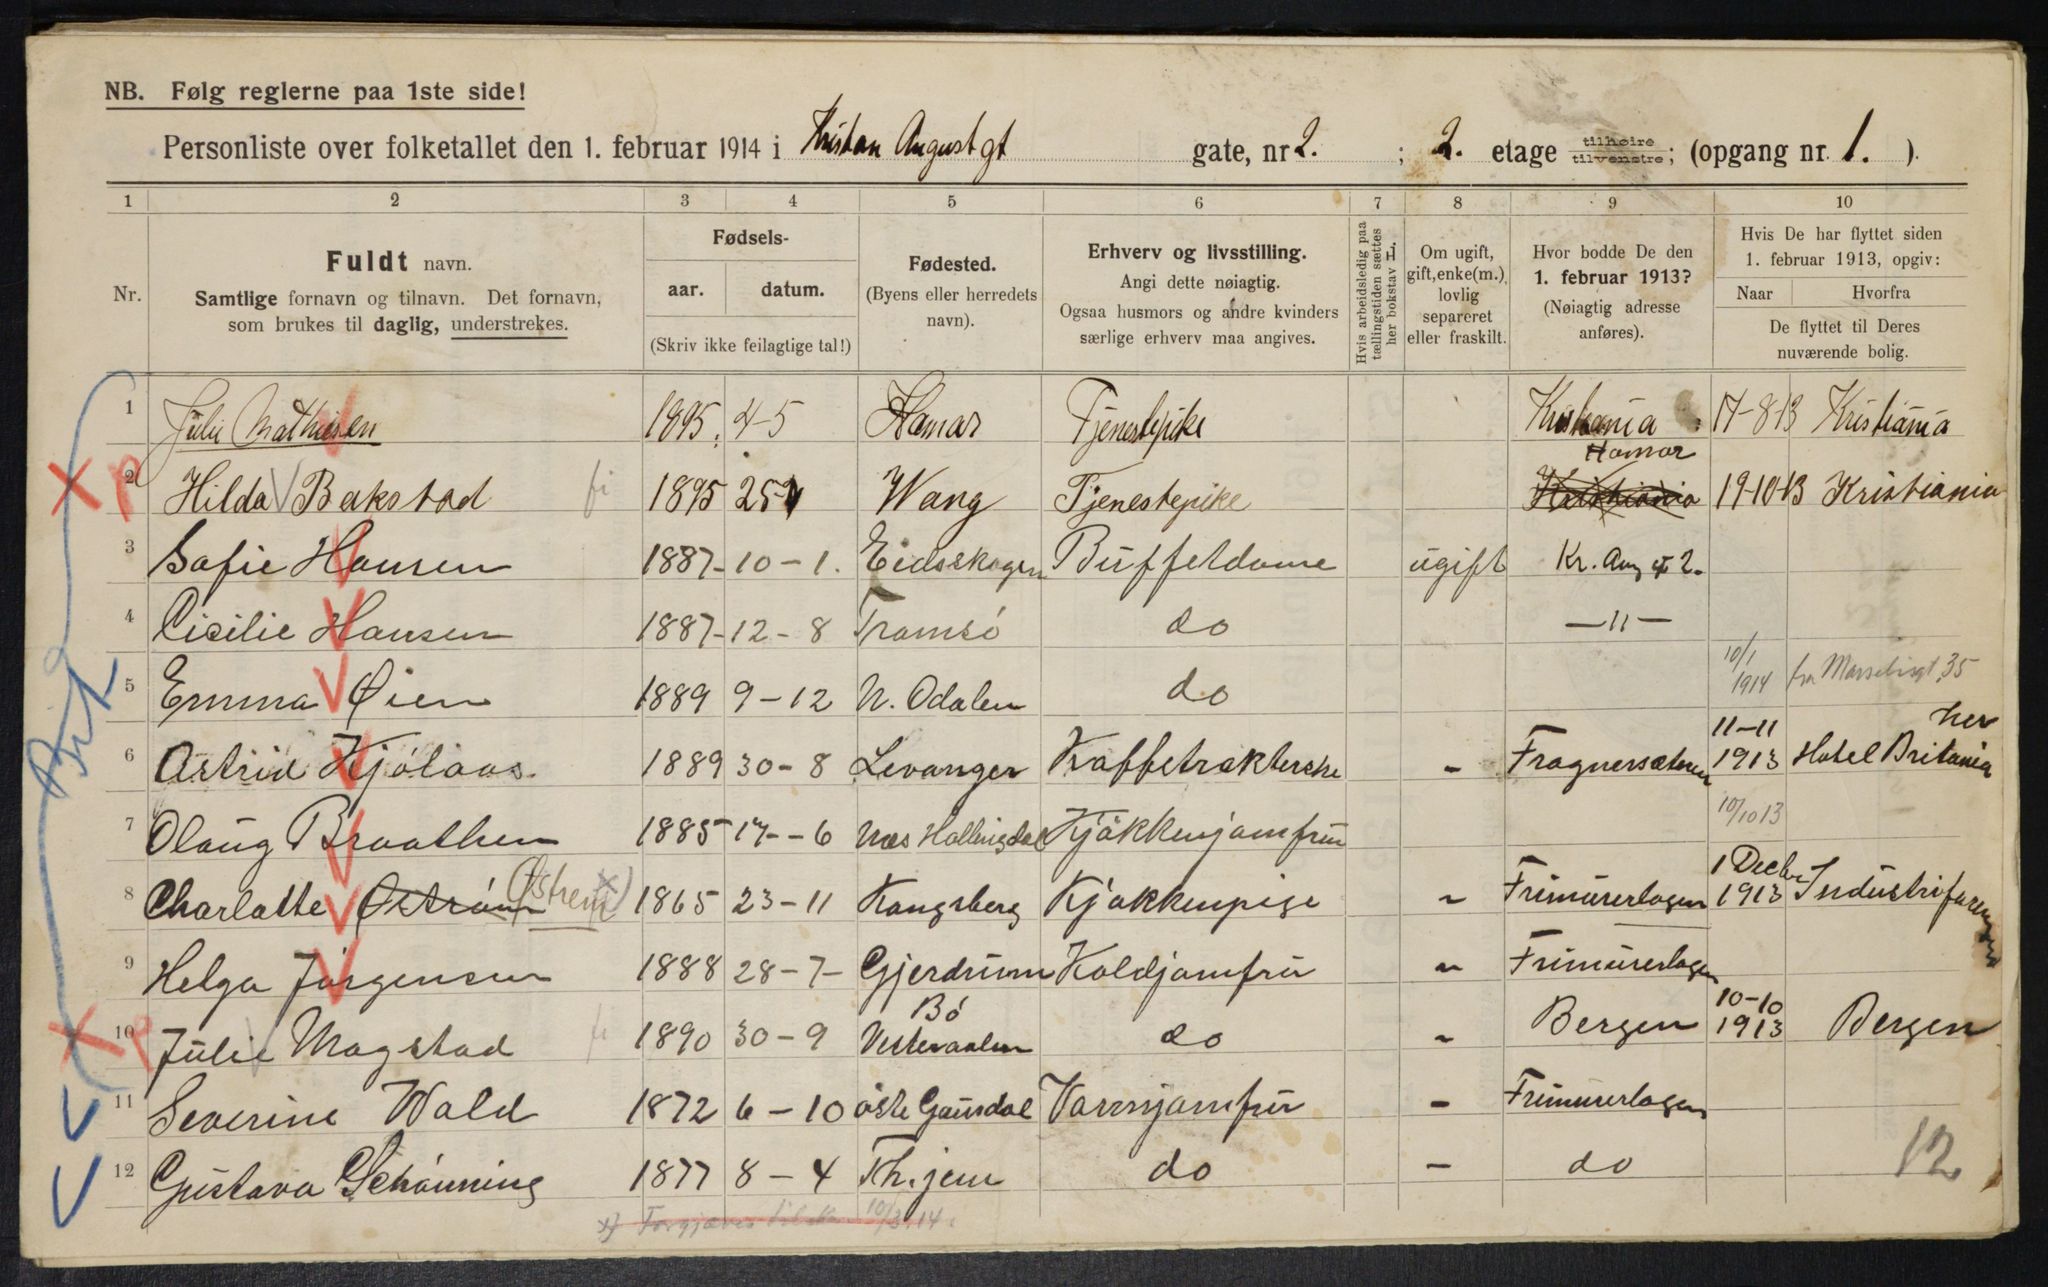 NB. Følg reglerne paa 1ste side!
Personliste over folketallet den 1. februar 1914 i Kristian Augustgt gate, nr 2. ; 2. etage tilhøire tilvenstre; (opgang nr. 1. ).
1 2 3 4 5 6 7 8 9 10
Nr.
Fuldt navn.
Samtlige fornavn og tilnavn. Det fornavn,
som brukes til daglig, understrekes.
Fødsels-
aar. datum.
(Skriv ikke feilagtige tal!)
Fødested.
(Byens eller herredets
navn).
Erhverv og livsstilling.
Angi dette nøiagtig.
Ogsaa husmors og andre kvinders
særlige erhverv maa angives.
Hvis arbeidsledig paa
tællingstiden sættes
her bokstav l.
Om ugift,
gift, enke(m.),
lovlig
separeret
eller fraskilt.
Hvor bodde De den
1. februar 1913?
(Nøiagtig adresse
anføres).
Hvis De har flyttet siden
1. februar 1913, opgiv:
Naar Hvorfra
De flyttet til Deres
nuværende bolig.
1 Julie Mathiesen 1895. 4-5 Hamar Tjenestepike Kristiania 17-8-13 Kristiania
Hamar
2 Hilda Bakstad 1895 25 Wang Tjenestepike Kristiania 19-10-13 Kristiania
3 Safie Hansen 1887- 10-1. Eidsskogen Buffetdame ugift Kr. Aug gt 2.
4 Cicilie Hansen 1887- 12-8 Tromsö do —"—
5 Emma Øien 1889 9-12 N. Odalen do 10/1 1914 fra 35
6 Astrid Kjölaas. 1889 30-8 Levanger Kaffetrakterske - Frognersæteren 11-11 1913 her Hotel Britania
7 Olaug Braathen 1885 17--6 Næs Hallingdal Kjökkenjomfru 10/10 13
8 Charlatte Oström (Østrem x) 1865 23-11 Kongsberg Kjøkkenpige - Frimurerlogen 1 Decbr 1913
9 Helga Jörgensen 1888 28-7- Gjerdrum Koldjomfru - Frimurerlogen
10 Julie Magstad 1890 30-9 Bö Vesteraalen do - Bergen 10-10 1913 Bergen
11 Severine Wold 1872 6-10 öste Gausdal Varmjomfru - Frimurerlogen
12 Gustava Schönning 1877 8-4 Th.jem do - do
12
x) 10/3.14.